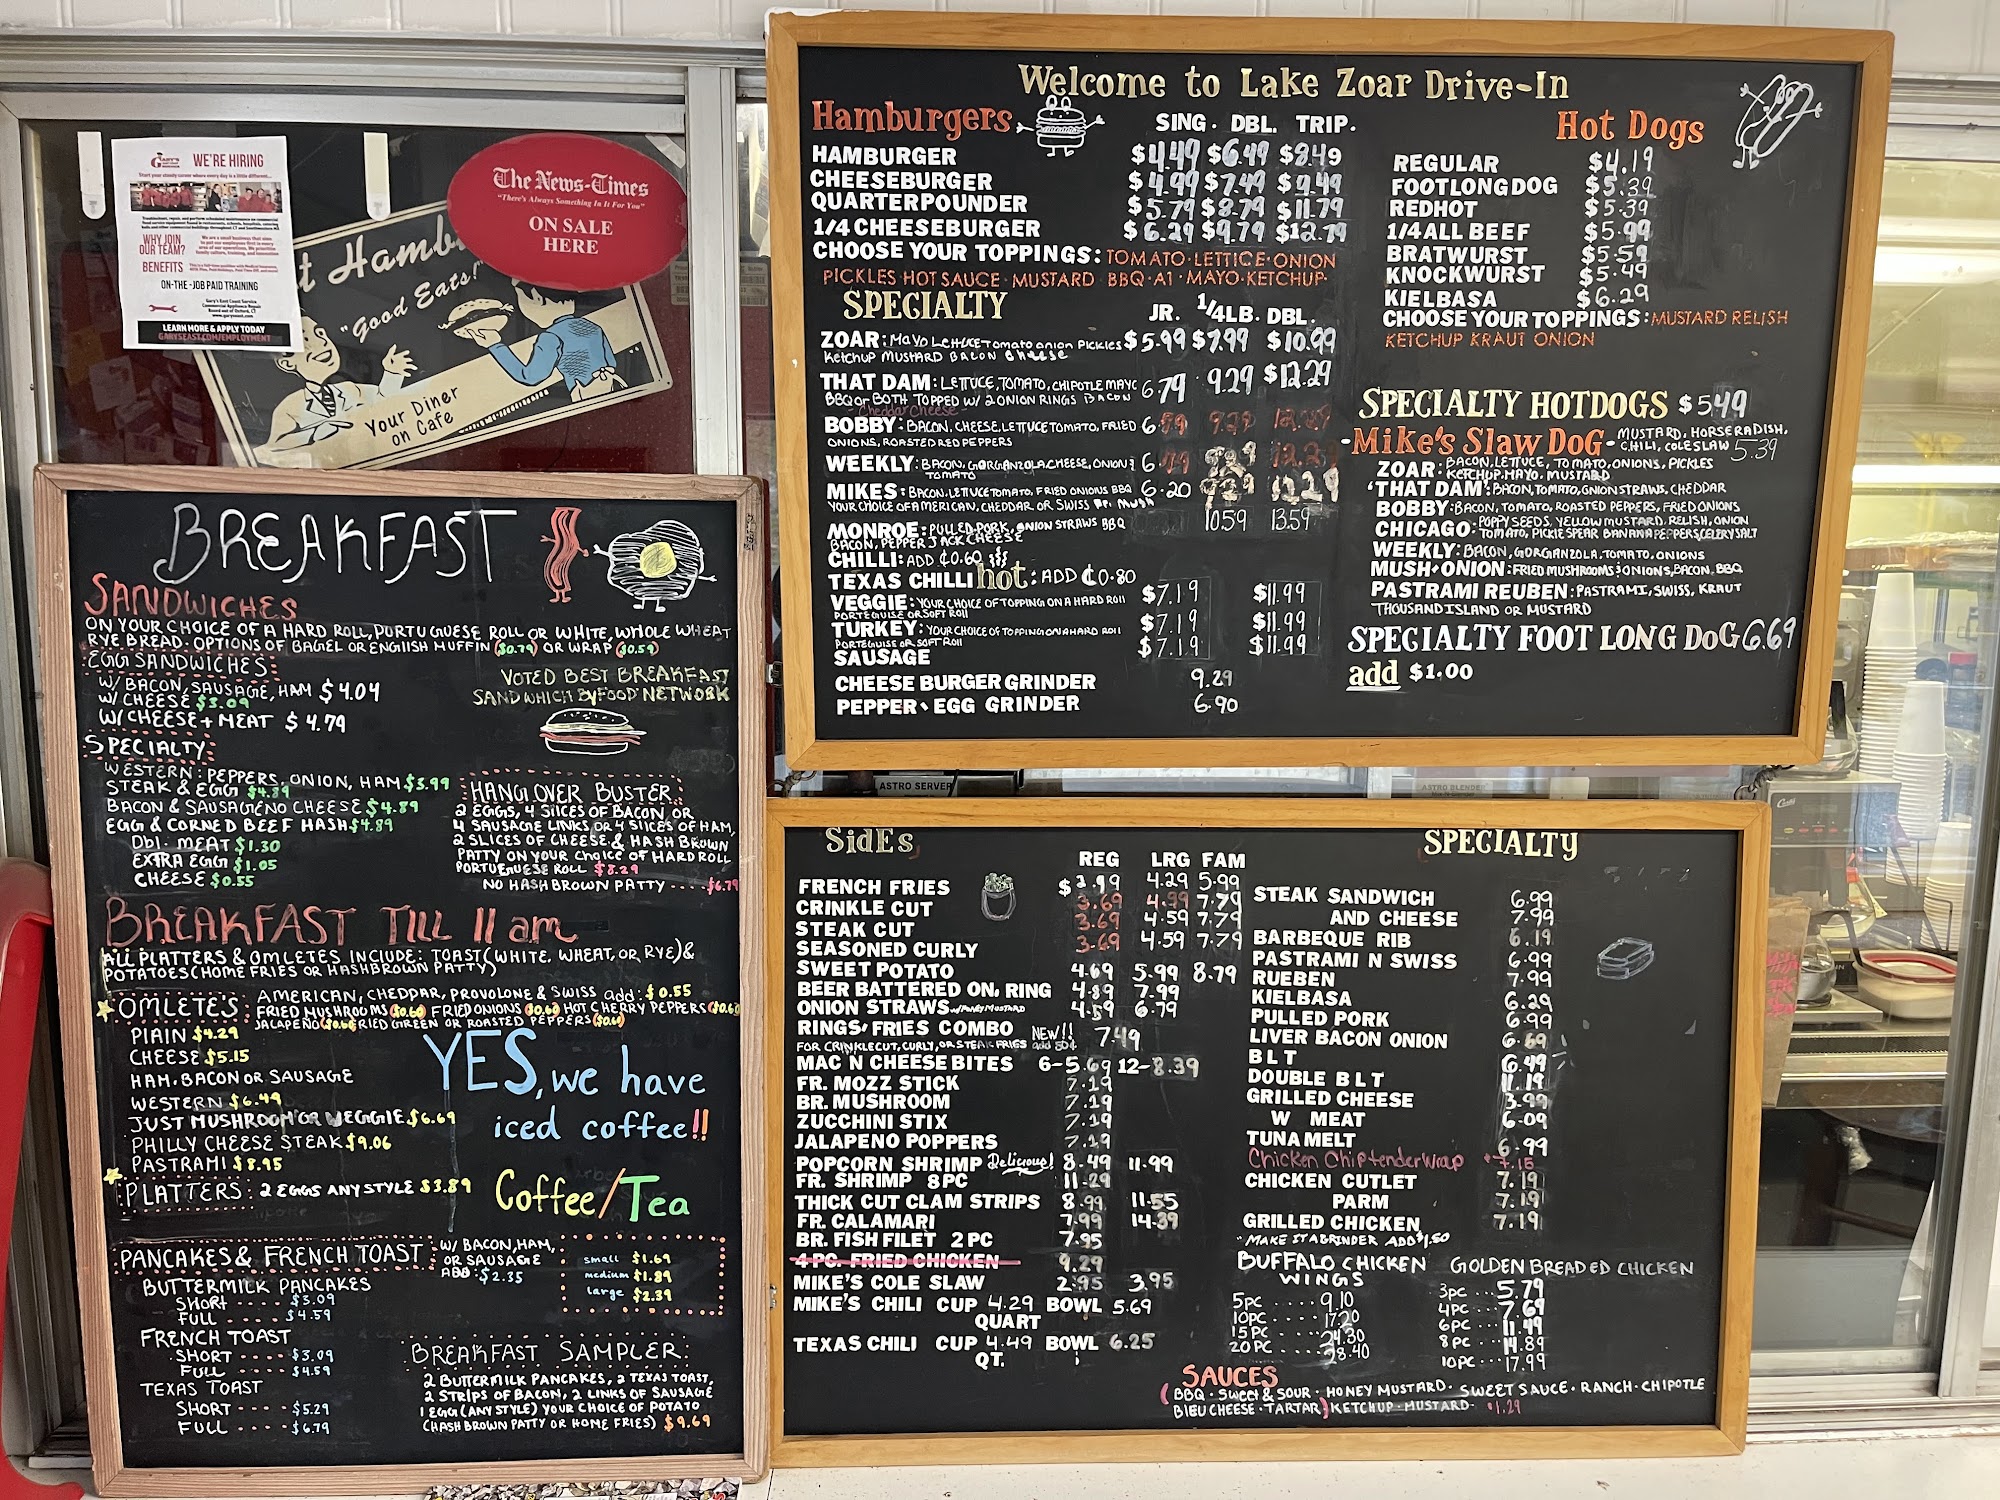 WE'RE HIRING
Start your steady career where every day is a little different...
WHY JOIN
OUR TEAM?
BENEFITS
ON-THE-JOB PAID TRAINING
Gary's East Coast Service
Commercial Appliance Repair
Based out of Oxford, CT
www.garyseast.com
LEARN MORE & APPLY TODAY
GARYSEAST.COM/EMPLOYMENT
The News-Times
"There's Always Something In It For You"
ON SALE
HERE
t Hamb
"Good Eats!"
Your Diner
on Cafe
BREAKFAST
SANDWICHES
ON YOUR CHOICE OF A HARD ROLL, PORTUGUESE ROLL OR WHITE, WHOLE WHEAT
RYE BREAD. OPTIONS OF BAGEL OR ENGLISH MUFFIN ($0.79) OR WRAP ($0.59)
EGG SANDWICHES
W/ BACON, SAUSAGE, HAM $4.04
W/ CHEESE $3.09
W/ CHEESE + MEAT $4.79
VOTED BEST BREAKFAST
SANDWHICH BY FOOD NETWORK
SPECIALTY
WESTERN: PEPPERS, ONION, HAM $3.99
STEAK & EGG $4.89
BACON & SAUSAGE NO CHEESE $4.89
EGG & CORNED BEEF HASH $4.89
Dbl. MEAT $1.30
EXTRA EGG $1.05
CHEESE $0.55
HANGOVER BUSTER
2 EGGS, 4 SLICES OF BACON OR
4 SAUSAGE LINKS OR 4 SLICES OF HAM,
2 SLICES OF CHEESE & HASH BROWN
PATTY ON YOUR CHOICE OF HARD ROLL
PORTUGUESE ROLL $8.29
NO HASH BROWN PATTY .... $6.79
BREAKFAST TILL 11 am
ALL PLATTERS & OMLETES INCLUDE: TOAST (WHITE, WHEAT, OR RYE) &
POTATOES (HOME FRIES OR HASHBROWN PATTY)
OMLETE'S
AMERICAN, CHEDDAR, PROVOLONE & SWISS add: $0.55
FRIED MUSHROOMS ($0.60) FRIED ONIONS ($0.60) HOT CHERRY PEPPERS ($0.60)
JALAPENO ($0.60) FRIED GREEN OR ROASTED PEPPERS ($0.60)
PLAIN $4.29
CHEESE $5.15
HAM, BACON OR SAUSAGE
WESTERN $6.49
JUST MUSHROOM OR VEGGIE $6.69
PHILLY CHEESE STEAK $9.06
PASTRAMI $8.95
PLATTERS: 2 EGGS ANY STYLE $3.89
YES, we have
iced coffee!!
Coffee/Tea
small $1.69
medium $1.89
large $2.39
PANCAKES & FRENCH TOAST
W/ BACON, HAM,
OR SAUSAGE
ADD: $2.35
BUTTERMILK PANCAKES
SHORT .... $3.09
FULL .... $4.59
FRENCH TOAST
SHORT .... $3.09
FULL .... $4.59
TEXAS TOAST
SHORT .... $5.29
FULL .... $6.79
BREAKFAST SAMPLER:
2 BUTTERMILK PANCAKES, 2 TEXAS TOAST,
2 STRIPS OF BACON, 2 LINKS OF SAUSAGE
1 EGG (ANY STYLE) YOUR CHOICE OF POTATO
(HASH BROWN PATTY OR HOME FRIES) $9.69
Welcome to Lake Zoar Drive-In
Hamburgers
SING. DBL. TRIP.
HAMBURGER $4.49 $6.49 $8.49
CHEESEBURGER $4.99 $7.49 $9.49
QUARTERPOUNDER $5.79 $8.79 $11.79
1/4 CHEESEBURGER $6.29 $9.79 $12.79
CHOOSE YOUR TOPPINGS: TOMATO·LETTICE·ONION
PICKLES·HOT SAUCE·MUSTARD BBQ·A1·MAYO·KETCHUP·
SPECIALTY
JR. 1/4LB. DBL.
ZOAR: MAYO LETTUCE TOMATO ONION PICKLES $5.99 $7.99 $10.99
KETCHUP MUSTARD BACON CHEESE
THAT DAM: LETTUCE, TOMATO, CHIPOTLE MAYO 6.79 9.29 $12.29
BBQ OR BOTH TOPPED W/ 2 ONION RINGS BACON
- Cheddar Cheese -
BOBBY: BACON, CHEESE, LETTUCE TOMATO, FRIED
ONIONS, ROASTED RED PEPPERS
WEEKLY: BACON, GORGANZOLA CHEESE, ONION &
TOMATO
MIKES: BACON, LETTUCE TOMATO, FRIED ONIONS BBQ 6.20
YOUR CHOICE OF AMERICAN, CHEDDAR OR SWISS FR. MUSH
MONROE: PULLED PORK, ONION STRAWS BBQ 10.59 13.59
BACON, PEPPER JACK CHEESE
CHILLI: ADD ¢0.60
TEXAS CHILLI hot: ADD ¢0.80
VEGGIE: YOUR CHOICE OF TOPPING ON A HARD ROLL $7.19 $11.99
PORTEGUISE OR SOFT ROLL
TURKEY: YOUR CHOICE OF TOPPING ON A HARD ROLL $7.19 $11.99
PORTEGUISE OR SOFT ROLL
SAUSAGE $7.19 $11.99
CHEESE BURGER GRINDER 9.29
PEPPER & EGG GRINDER 6.90
Hot Dogs
REGULAR $4.19
FOOTLONG DOG $5.39
REDHOT $5.39
1/4 ALL BEEF $5.99
BRATWURST $5.59
KNOCKWURST $5.49
KIELBASA $6.29
CHOOSE YOUR TOPPINGS: MUSTARD RELISH
KETCHUP KRAUT ONION
SPECIALTY HOTDOGS $5.49
-Mike's Slaw DoG- MUSTARD, HORSERADISH,
CHILI, COLESLAW 5.39
ZOAR: BACON, LETTUCE, TOMATO, ONIONS, PICKLES
KETCHUP, MAYO, MUSTARD
THAT DAM: BACON, TOMATO, ONION STRAWS, CHEDDAR
BOBBY: BACON, TOMATO, ROASTED PEPPERS, FRIED ONIONS
CHICAGO: POPPY SEEDS, YELLOW MUSTARD, RELISH, ONION
TOMATO, PICKLE SPEAR BANANA PEPPERS, CELERY SALT
WEEKLY: BACON, GORGANZOLA, TOMATO, ONIONS
MUSH·ONION: FRIED MUSHROOMS & ONIONS, BACON, BBQ
PASTRAMI REUBEN: PASTRAMI, SWISS, KRAUT
THOUSAND ISLAND OR MUSTARD
SPECIALTY FOOT LONG DoG 6.69
add $1.00
ASTRO SERVER
ASTRO BLENDER
SidEs
REG LRG FAM
FRENCH FRIES $2.99 4.29 5.99
CRINKLE CUT 3.69 4.99 7.79
STEAK CUT 3.69 4.59 7.79
SEASONED CURLY 3.69 4.59 7.79
SWEET POTATO 4.69 5.99 8.79
BEER BATTERED ON. RING 4.89 7.99
ONION STRAWS W/HONEY MUSTARD 4.59 6.79
RINGS/FRIES COMBO NEW!! 7.49
FOR CRINKLECUT, CURLY, OR STEAK FRIES add 50¢
MAC N CHEESE BITES 6-5.69 12-8.39
FR. MOZZ STICK 7.19
BR. MUSHROOM 7.19
ZUCCHINI STIX 7.19
JALAPENO POPPERS 7.19
POPCORN SHRIMP Delicious! 8.49 11.99
FR. SHRIMP 8PC 11.29
THICK CUT CLAM STRIPS 8.99 11.55
FR. CALAMARI 7.99 14.39
BR. FISH FILET 2 PC 7.95
4 PC. FRIED CHICKEN 9.29
MIKE'S COLE SLAW 2.95 3.95
MIKE'S CHILI CUP 4.29 BOWL 5.69
QUART
TEXAS CHILI CUP 4.49 BOWL 6.25
QT.
SPECIALTY
STEAK SANDWICH 6.99
AND CHEESE 7.99
BARBEQUE RIB 6.19
PASTRAMI N SWISS 6.99
RUEBEN 7.99
KIELBASA 6.29
PULLED PORK 6.99
LIVER BACON ONION 6.69
B L T 6.49
DOUBLE B L T 11.19
GRILLED CHEESE 3.99
W MEAT 6.09
TUNA MELT 6.99
Chicken Chiptender Wrap 7.15
CHICKEN CUTLET 7.19
PARM 7.19
GRILLED CHICKEN 7.19
"MAKE IT A GRINDER ADD $1.50
BUFFALO CHICKEN
WINGS
5PC ..... 9.10
10PC ..... 17.20
15PC ..... 24.30
20PC ..... 28.40
GOLDEN BREADED CHICKEN
3PC ... 5.79
4PC ... 7.69
6PC ... 11.49
8PC ... 14.89
10PC ... 17.99
SAUCES
(BBQ · SWEET & SOUR · HONEY MUSTARD · SWEET SAUCE · RANCH · CHIPOTLE
BLEU CHEESE · TARTAR) KETCHUP · MUSTARD · $1.29